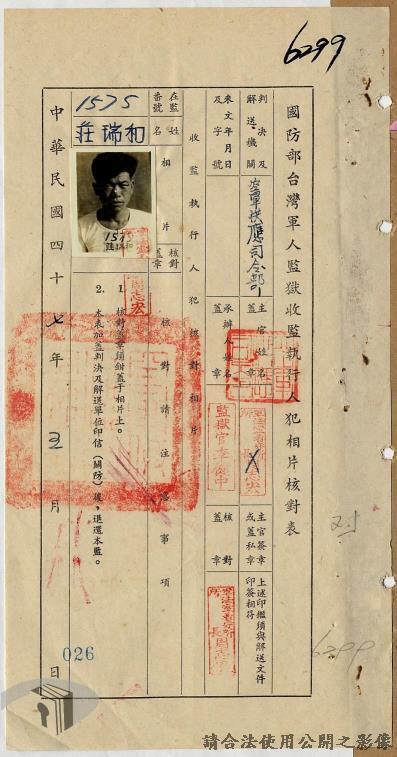 6299
國防部台灣軍人監獄收監執行人犯相片核對表
判決及解送機關
空軍供應司令部
主官姓名蓋章
主官簽章或蓋私章
上述印鑑須與解送文件印簽相符
來文年月日及字號
承辦人姓名蓋章
監獄官李
核對蓋章
周志
收監執行人犯核對相片
在監番號
1575
姓名
莊瑞和
相片
1575
莊瑞和
核對蓋章
周志宏
核對請注意事項
1. 核對蓋章須鉗蓋于相片上。
2. 本表加蓋判決及解送單位印信(關防)後,退還本監。
中華民國四十七年五月日
026
6299
請合法使用公開之影像